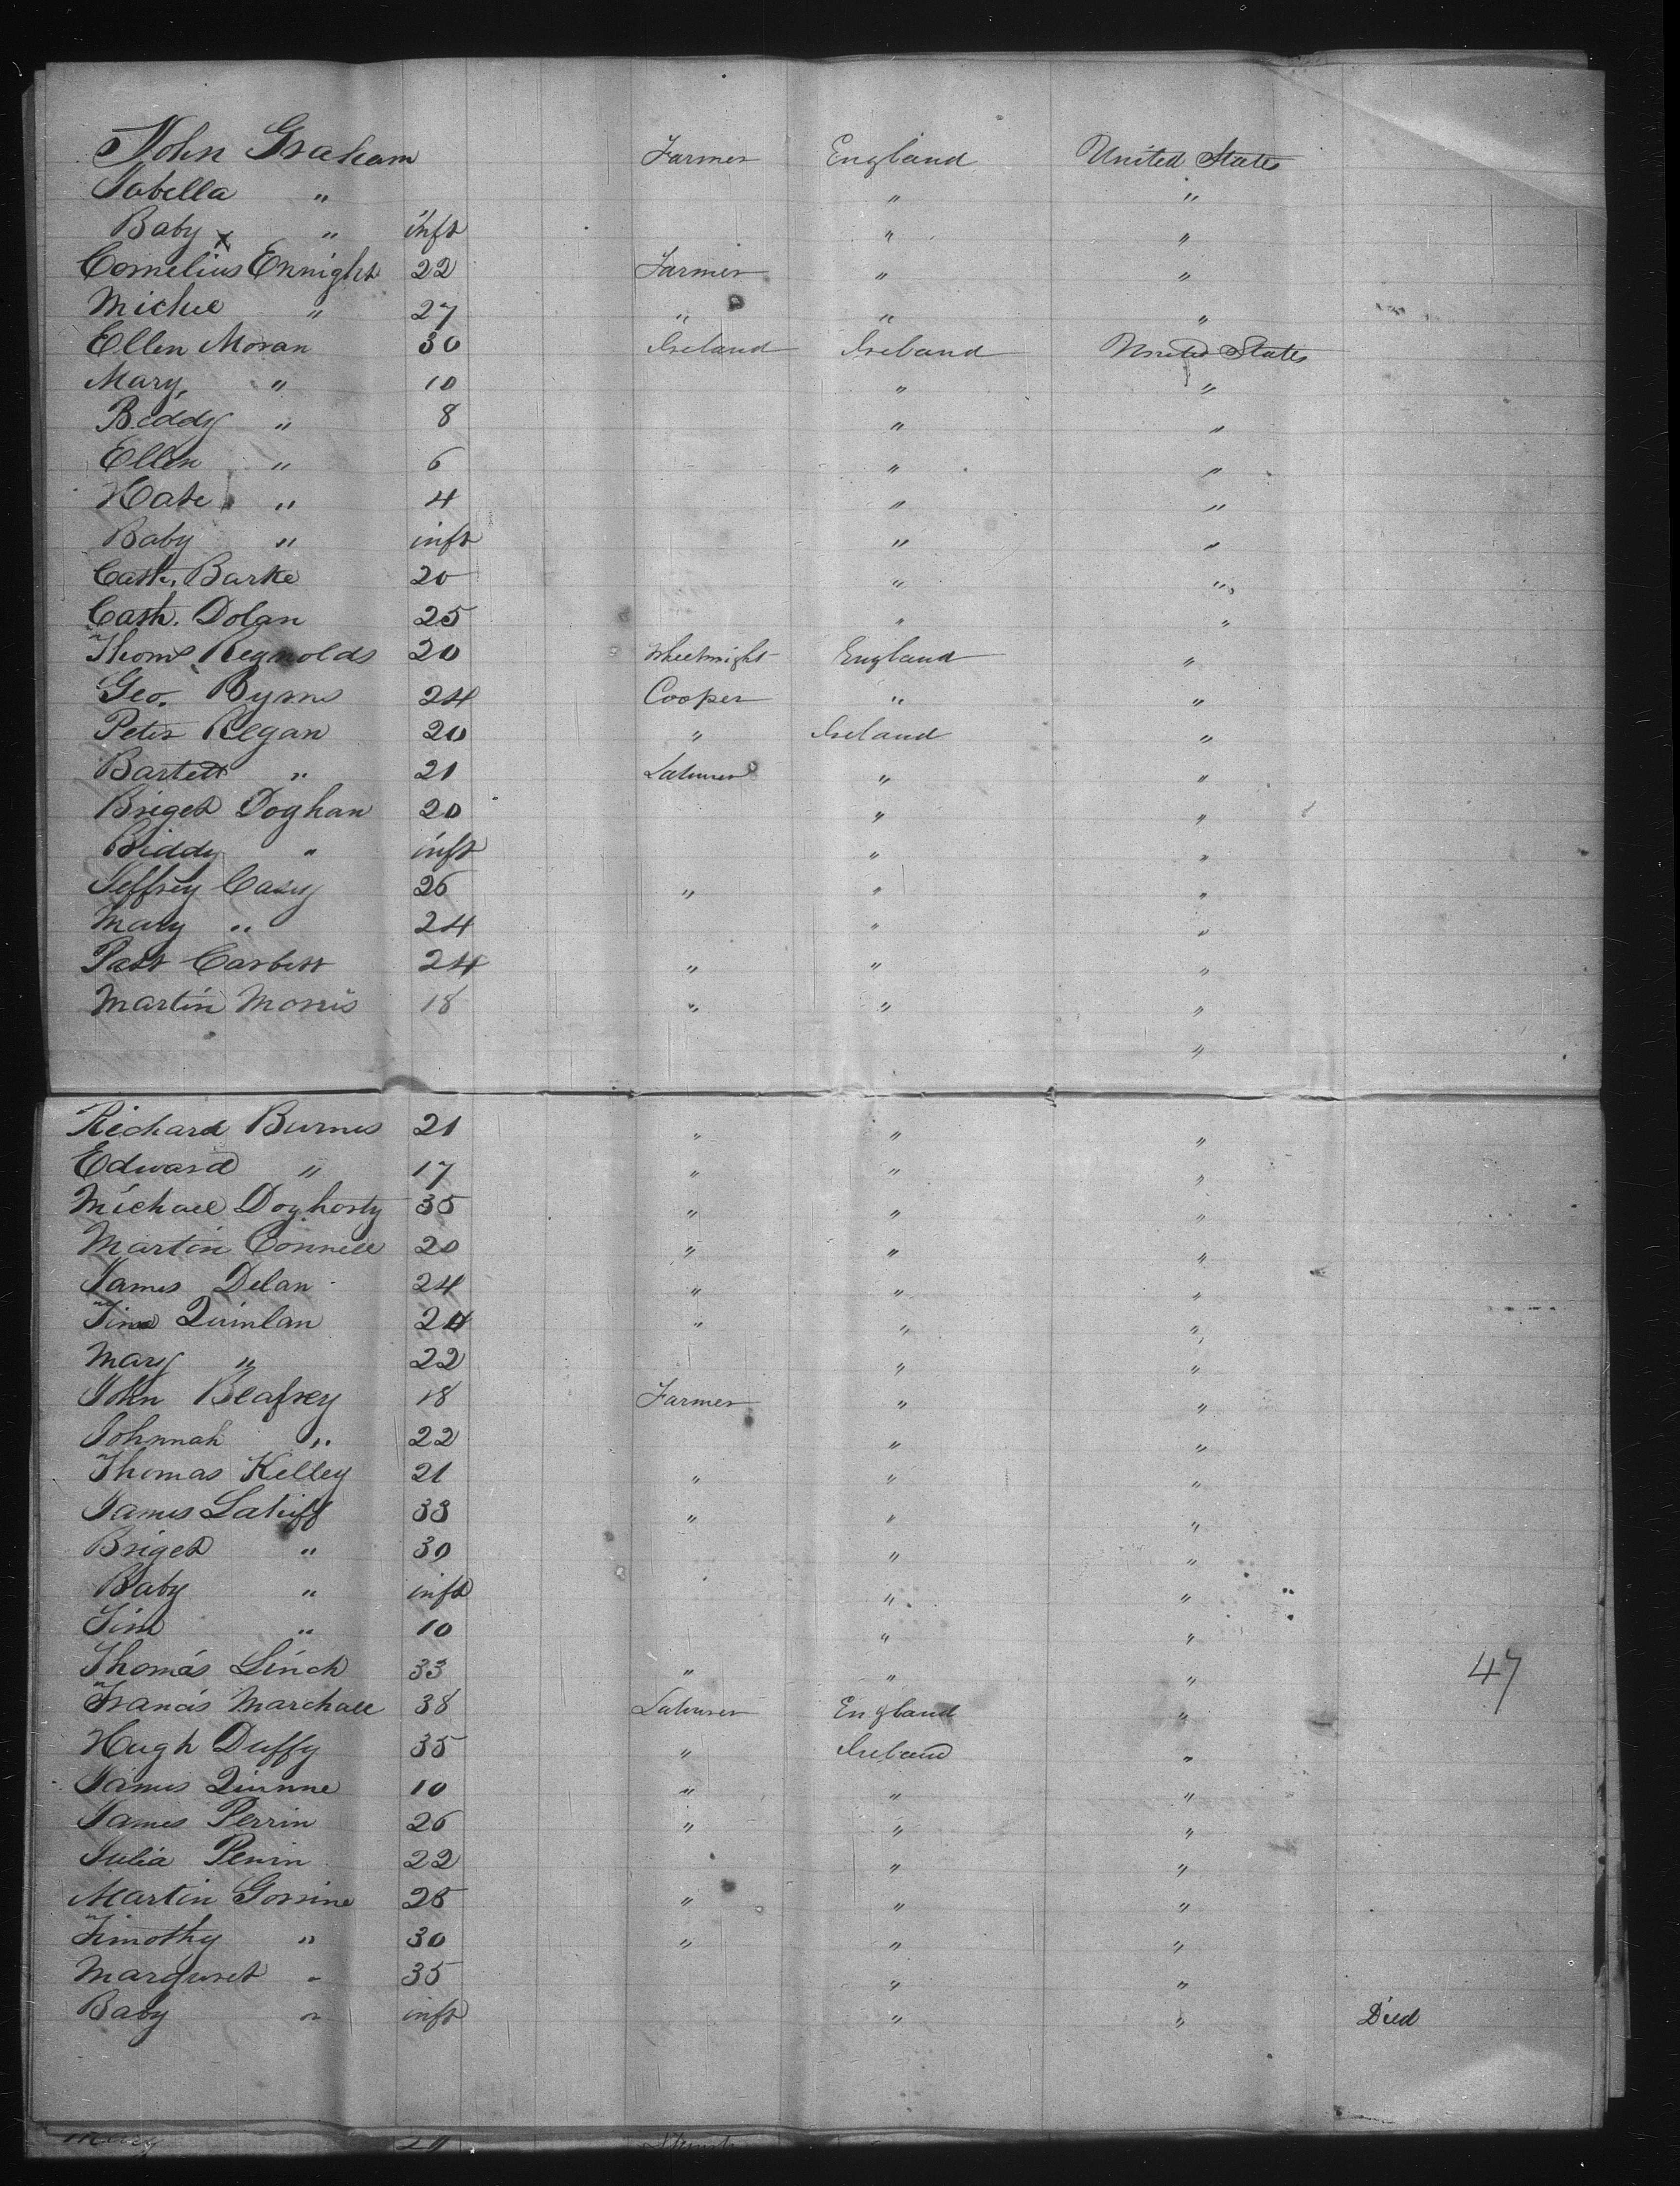 John Graham Farmer England United States
Isabella " " "
Baby x " inft " "
Cornelius Ennight 22 Farmer " "
Michel " 27 " " "
Ellen Moran 30 Ireland Ireland United States
Mary " 10 " "
Biddy " 8 " "
Ellen " 6 " "
Kate " 4 " "
Baby " inft " "
Cath. Burke 20 " "
Cath. Dolan 25 " "
Thoms Reynolds 20 Wheelwright England "
Geo. Byrns 24 Cooper " "
Peter Regan 20 " Ireland "
Bartett " 21 Labourer " "
Briget Doghan 20 " "
Biddy " inft " "
Jeffrey Casey 26 " " "
Mary " 24 " "
Patt Corbett 24 " " "
Martin Morris 18 " " "
"
Richard Burnes 21 " " "
Edward " 17 " " "
Michael Doghorty 35 " " "
Martin Connell 20 " " "
James Delan 24 " " "
Tim Quinlan 24 " " "
Mary " 22 " "
John Beafrey 18 Farmer " "
Johnnah " 22 " "
Thomas Kelley 21 " " "
James Lahiff 33 " " "
Briget " 30 " "
Baby " inft " "
Tim " 10 " "
Thomas Linch 33 " " " 47
Francis Marchall 38 Labourer England "
Hugh Duffy 35 " Ireland "
James Quinne 10 " " "
James Perrin 26 " " "
Julia Perrin 22 " "
Martin Gorrine 25 " " "
Timothy " 30 " " "
Marguret " 35 " "
Baby " inft " " Died